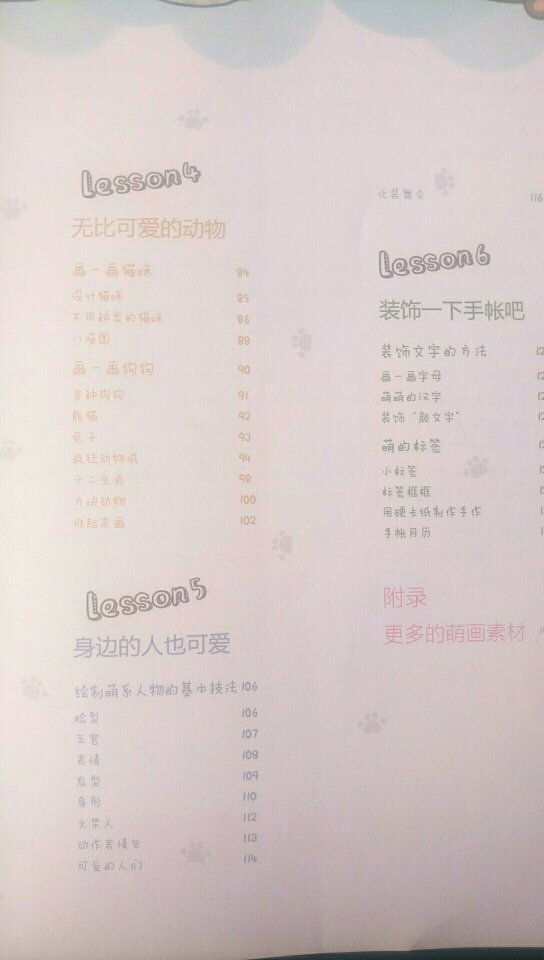 lesson4
无比可爱的动物
画一画猫咪 84
设计猫咪 85
不同种类的猫咪 86
八喵图 88
画一画狗狗 90
各种狗狗 91
熊猫 92
兔子 93
疯狂动物城 94
十二生肖 98
方块动物 100
涂起来画 102
lesson5
身边的人也可爱
绘制萌系人物的基本技法 106
脸型 106
五官 107
表情 108
发型 109
身形 110
火柴人 112
动作表情包 113
可爱的人们 114
化装舞会 116
lesson6
装饰一下手帐吧
装饰文字的方法
画一画字母
萌萌的汉字
装饰“颜文字”
萌的标签
小标签
标签框框
用硬卡纸制作手作
手帐月历
附录
更多的萌画素材